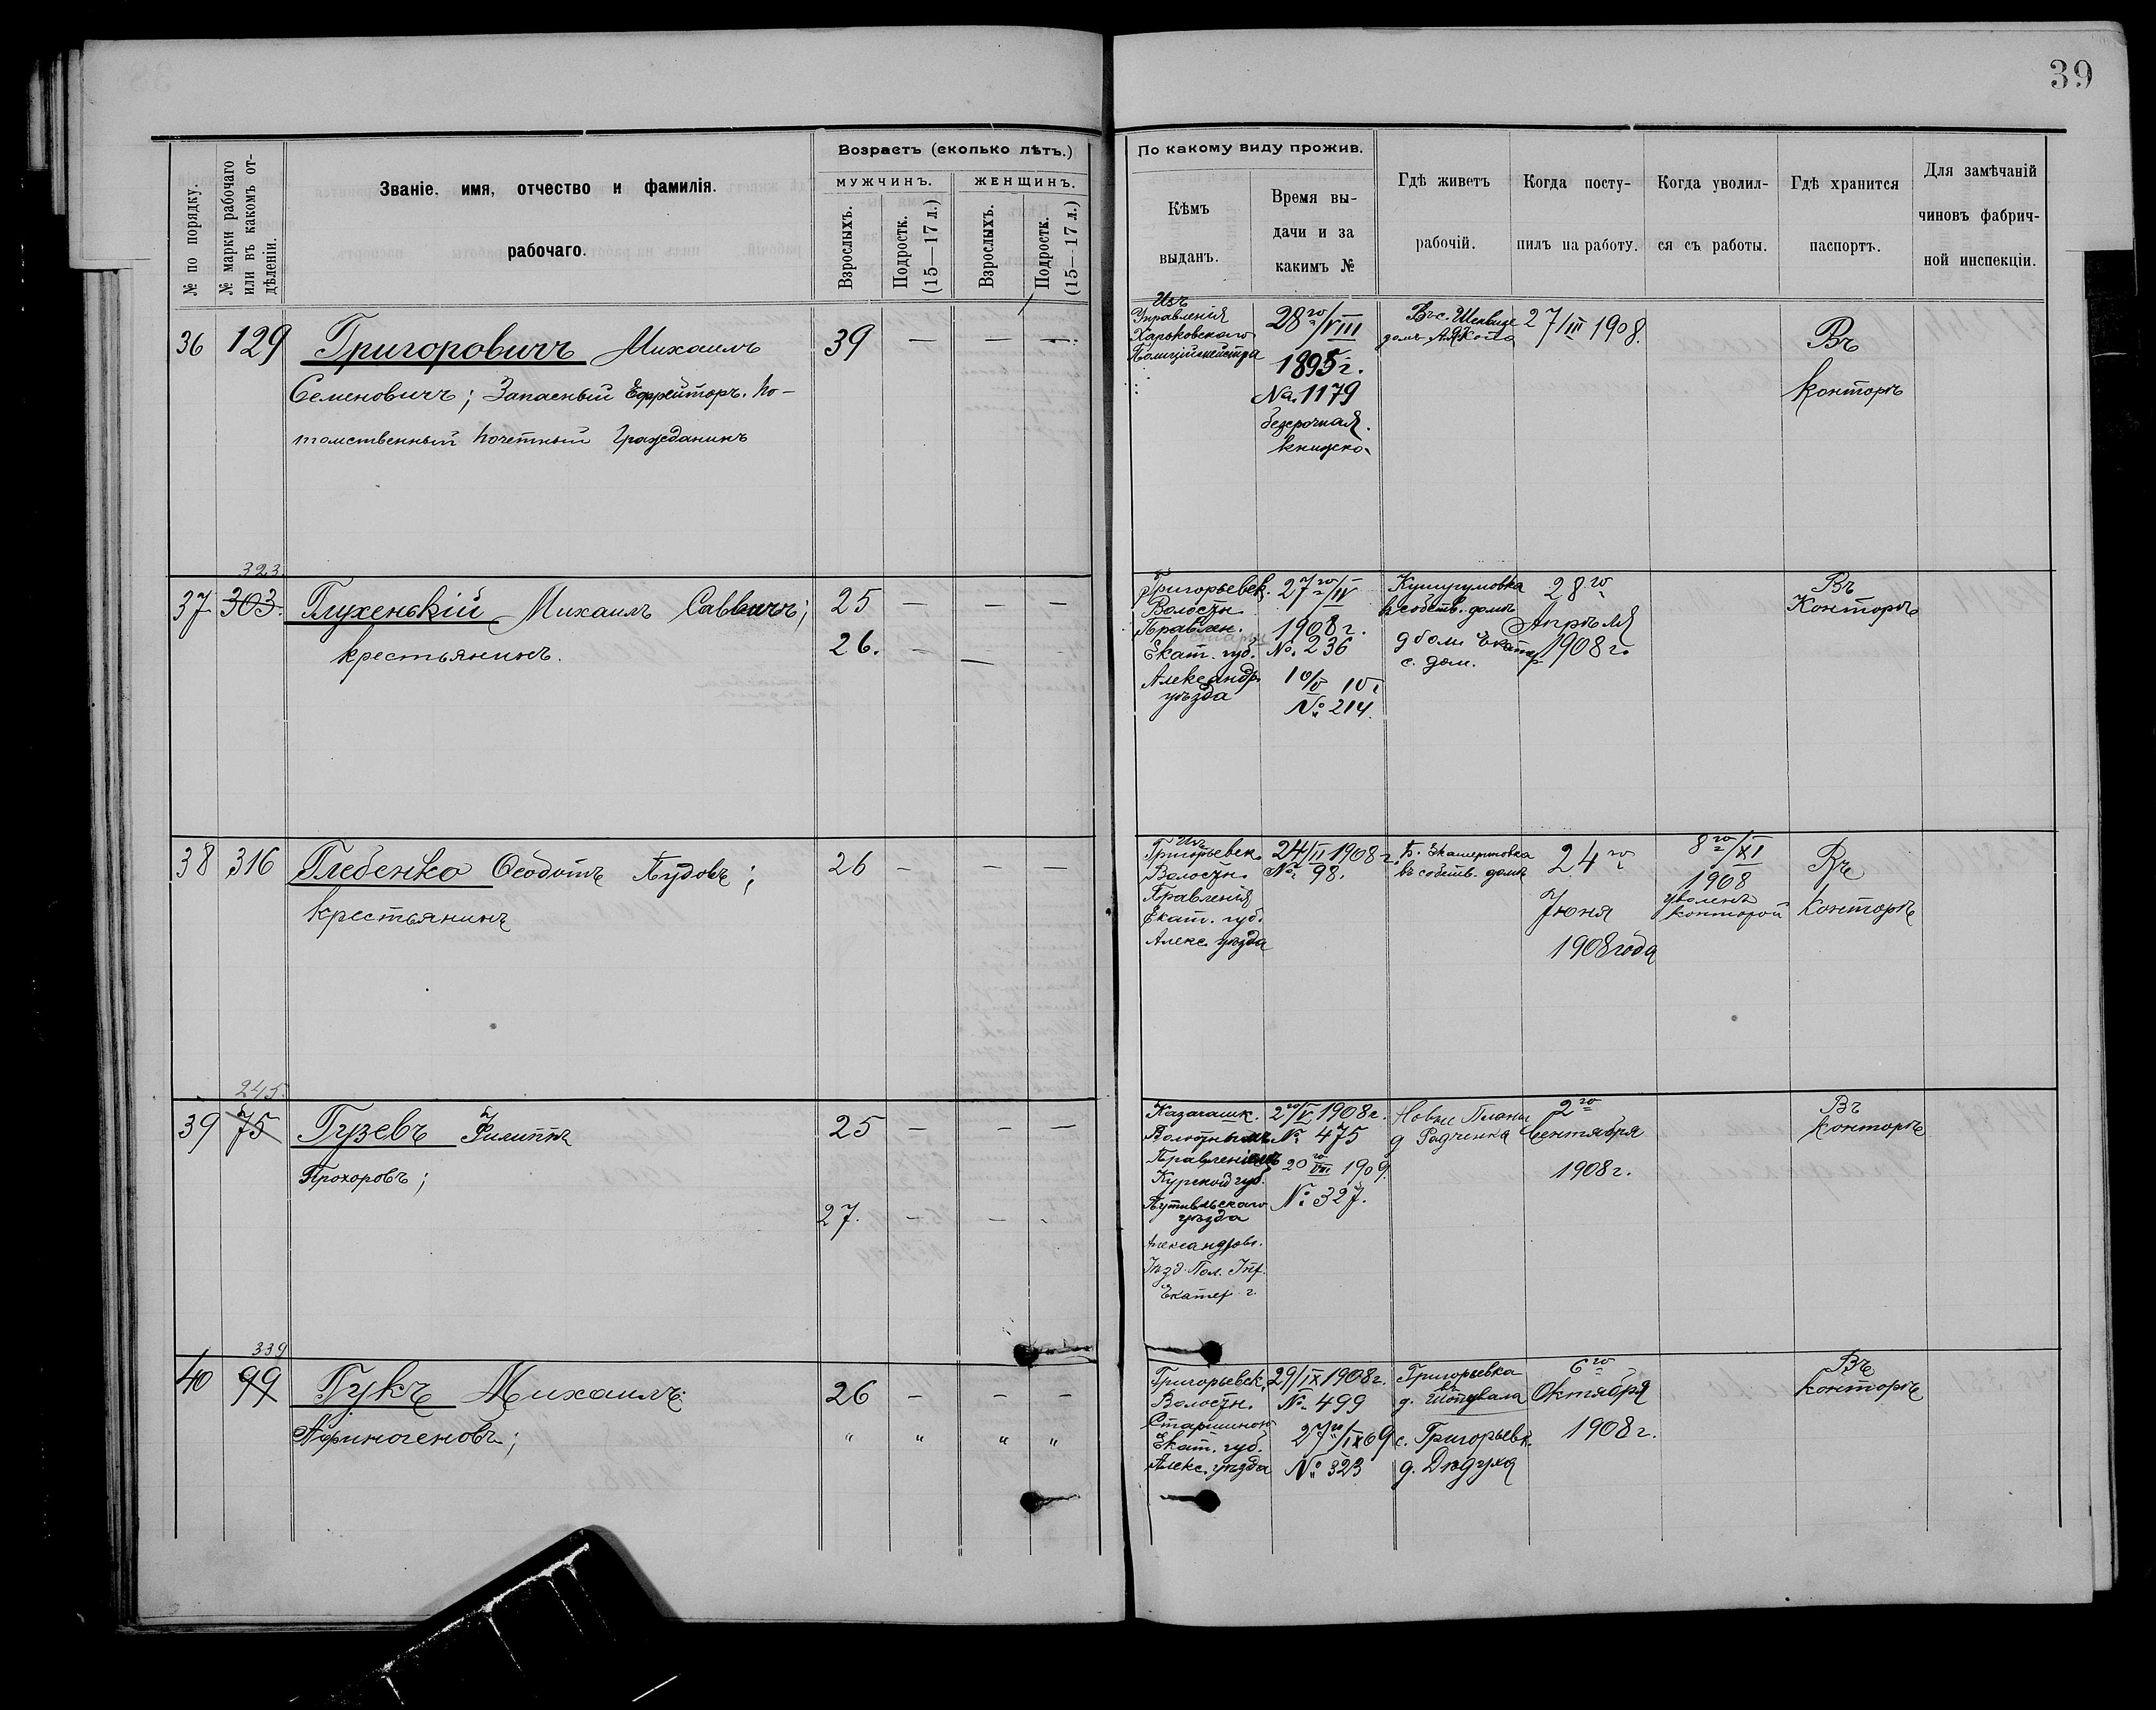 39
№ по порядку.
№ марки рабочаго или въ какомъ от-дѣленіи.
Званіе, имя, отчество и фамилія.
рабочаго.
Возрастъ (сколько лѣтъ.)
МУЖЧИНЪ.
ЖЕНЩИНЪ.
Взрослыхъ.
Подростк. (15—17 л.)
Взрослыхъ.
Подростк. (15—17 л.)
По какому виду прожив.
Кѣмъ
выданъ.
Время вы-
дачи и за
какимъ №
Гдѣ живетъ
рабочій.
Когда посту-
пилъ на работу.
Когда уволил-
ся съ работы.
Гдѣ хранится
паспортъ.
Для замѣчаній
чиновъ фабрич-
ной инспекціи.
36 129 Григоровичъ Михаилъ 39 — — —
Семеновичъ; Запасный Ефрейторъ. По-
томственный Почетный Гражданинъ
Изъ
Управленія
Харьковскаго
Полиціймейстра
28го/VIII
1895 г.
№ 1179
безсрочная
книжка
27/III 1908.
Въ
Конторѣ
323
37 303 Глухенькій Михаилъ Саввичъ; 25 — — —
крестьянинъ. 26. — — —
Григорьевск.
Волостн.
Правлен.
Екат. губ.
Александр.
уѣзда
27го/IV
1908 г.
№ 236
10/V 10 г
№ 214.
въ собств. домѣ
с. дом.
28го
Апрѣля
1908 г.
Въ
Конторѣ
38 316 Глебенко Ѳеодотъ Пудовъ; 26 — — —
Крестьянинъ
Изъ
Григорьевск.
Волостн.
Правленія
Екат. губ.
Алекс. уѣзда
24/II 1908 г.
№ 98.
въ собств. домѣ
24го
Іюня
1908 года
8го/XI
1908
уволенъ
конторой
Въ
Конторѣ
245
39 75 Гузевъ Филиппъ 25 — — —
Прохоровъ;
27. — — -
Волостнымъ
Правленіемъ
Курской губ.
Путивльскаго
уѣзда
Александров.
Уѣзд. Пол. Упр.
Екатер. г.
2го/V 1908 г.
№ 475
20го VIII 1909
№ 327.
Новые Планы
д Радченка
2го
Сентября
1908 г.
Въ
Конторѣ
339
40 99 Гукъ Михаилъ 26 — — —
Афиногеновъ; " " " "
Григорьевск.
Волостн.
Старшиною
Екат. губ.
Алекс. уѣзда
29/IX 1908 г.
№ 499
27го/IX 09
№ 323
Григорьевка
с. Григорьевк.
д. Дѣдуха
6го
Октября
1908 г.
Въ
конторѣ